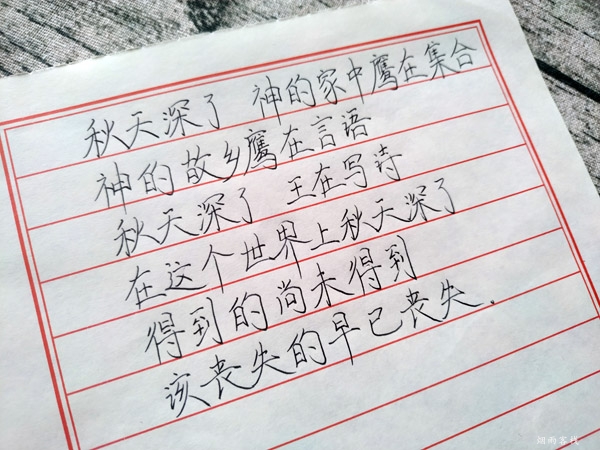 秋天深了 神的家中鹰在集合
神的故乡鹰在言语
秋天深了 王在写诗
在这个世界上秋天深了
得到的尚未得到
该丧失的早已丧失.